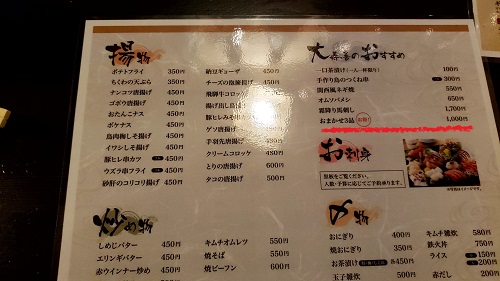 揚物
ポテトフライ 350円
ちくわの天ぷら 350円
ナンコツ唐揚げ 450円
ゴボウ唐揚げ 450円
おたんこナス 450円
ポケナス 450円
鳥肉梅しそ揚げ 450円
イワシしそ揚げ 450円
豚ヒレ串カツ 450円
ウズラ串フライ 450円
砂肝のコリコリ揚げ 450円
納豆ギョーザ 450円
チーズの泡雪揚げ 450円
飛騨牛コロッケ 450円
揚げ出し 450円
豚ヒレみそ 450円
ゲソ唐揚げ 450円
手羽先唐揚げ 450円
クリームコロッケ 450円
とりの唐揚げ 600円
タコの唐揚げ 500円
炒め物
しめじバター 450円
エリンギバター 450円
赤ウインナー炒め 450円
キムチオムレツ 550円
焼そば 550円
焼ビーフン 600円
のおすすめ
一口茶漬け 100円
手作り鳥のつくね串 300円
関西風ネギ焼 550円
オムソバメシ 650円
霜降り馬刺し 1,700円
おまかせ3品 1,000円
お刺身
黒板をご覧ください。
人数・予算に応じてご予約承ります。
〆物
おにぎり 400円
焼おにぎり 350円
お茶漬け 各450円
玉子雑炊 500円
キムチ雑炊 580円
鉄火丼 750円
ライス 150円
200円
赤だし 200円